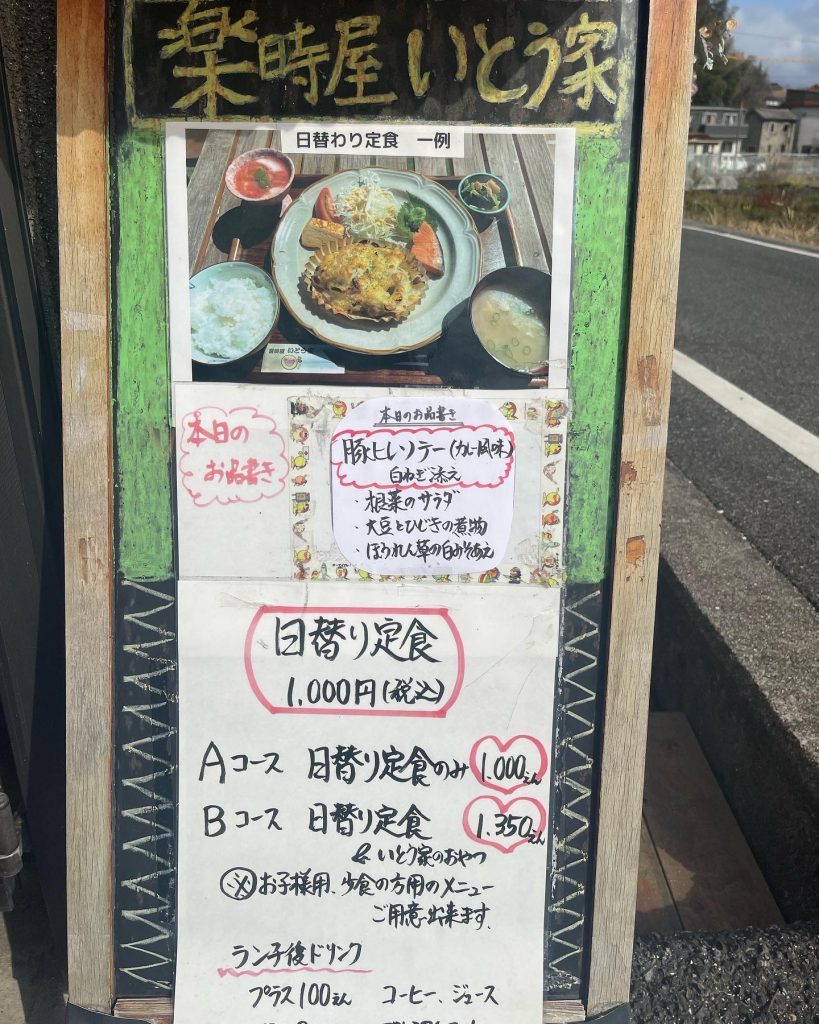 楽時屋 いとう家
日替わり定食 一例
楽時屋 いとう家
本日の
お品書き
本日のお品書き
豚ヒレソテー(カレー風味)
白ねぎ添え
・根菜のサラダ
・大豆とひじきの煮物
・ほうれん草の白みそあえ
日替り定食
1,000円(税込)
Aコース 日替り定食のみ 1.000えん
Bコース 日替り定食 1.350えん
& いとう家のおやつ
※お子様用、少食の方用のメニュー
ご用意出来ます.
ランチ後ドリンク
プラス100えん コーヒー、ジュース